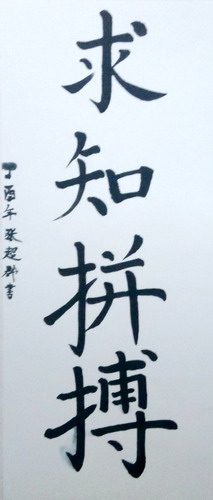 求知拼搏
丁酉年张超群书